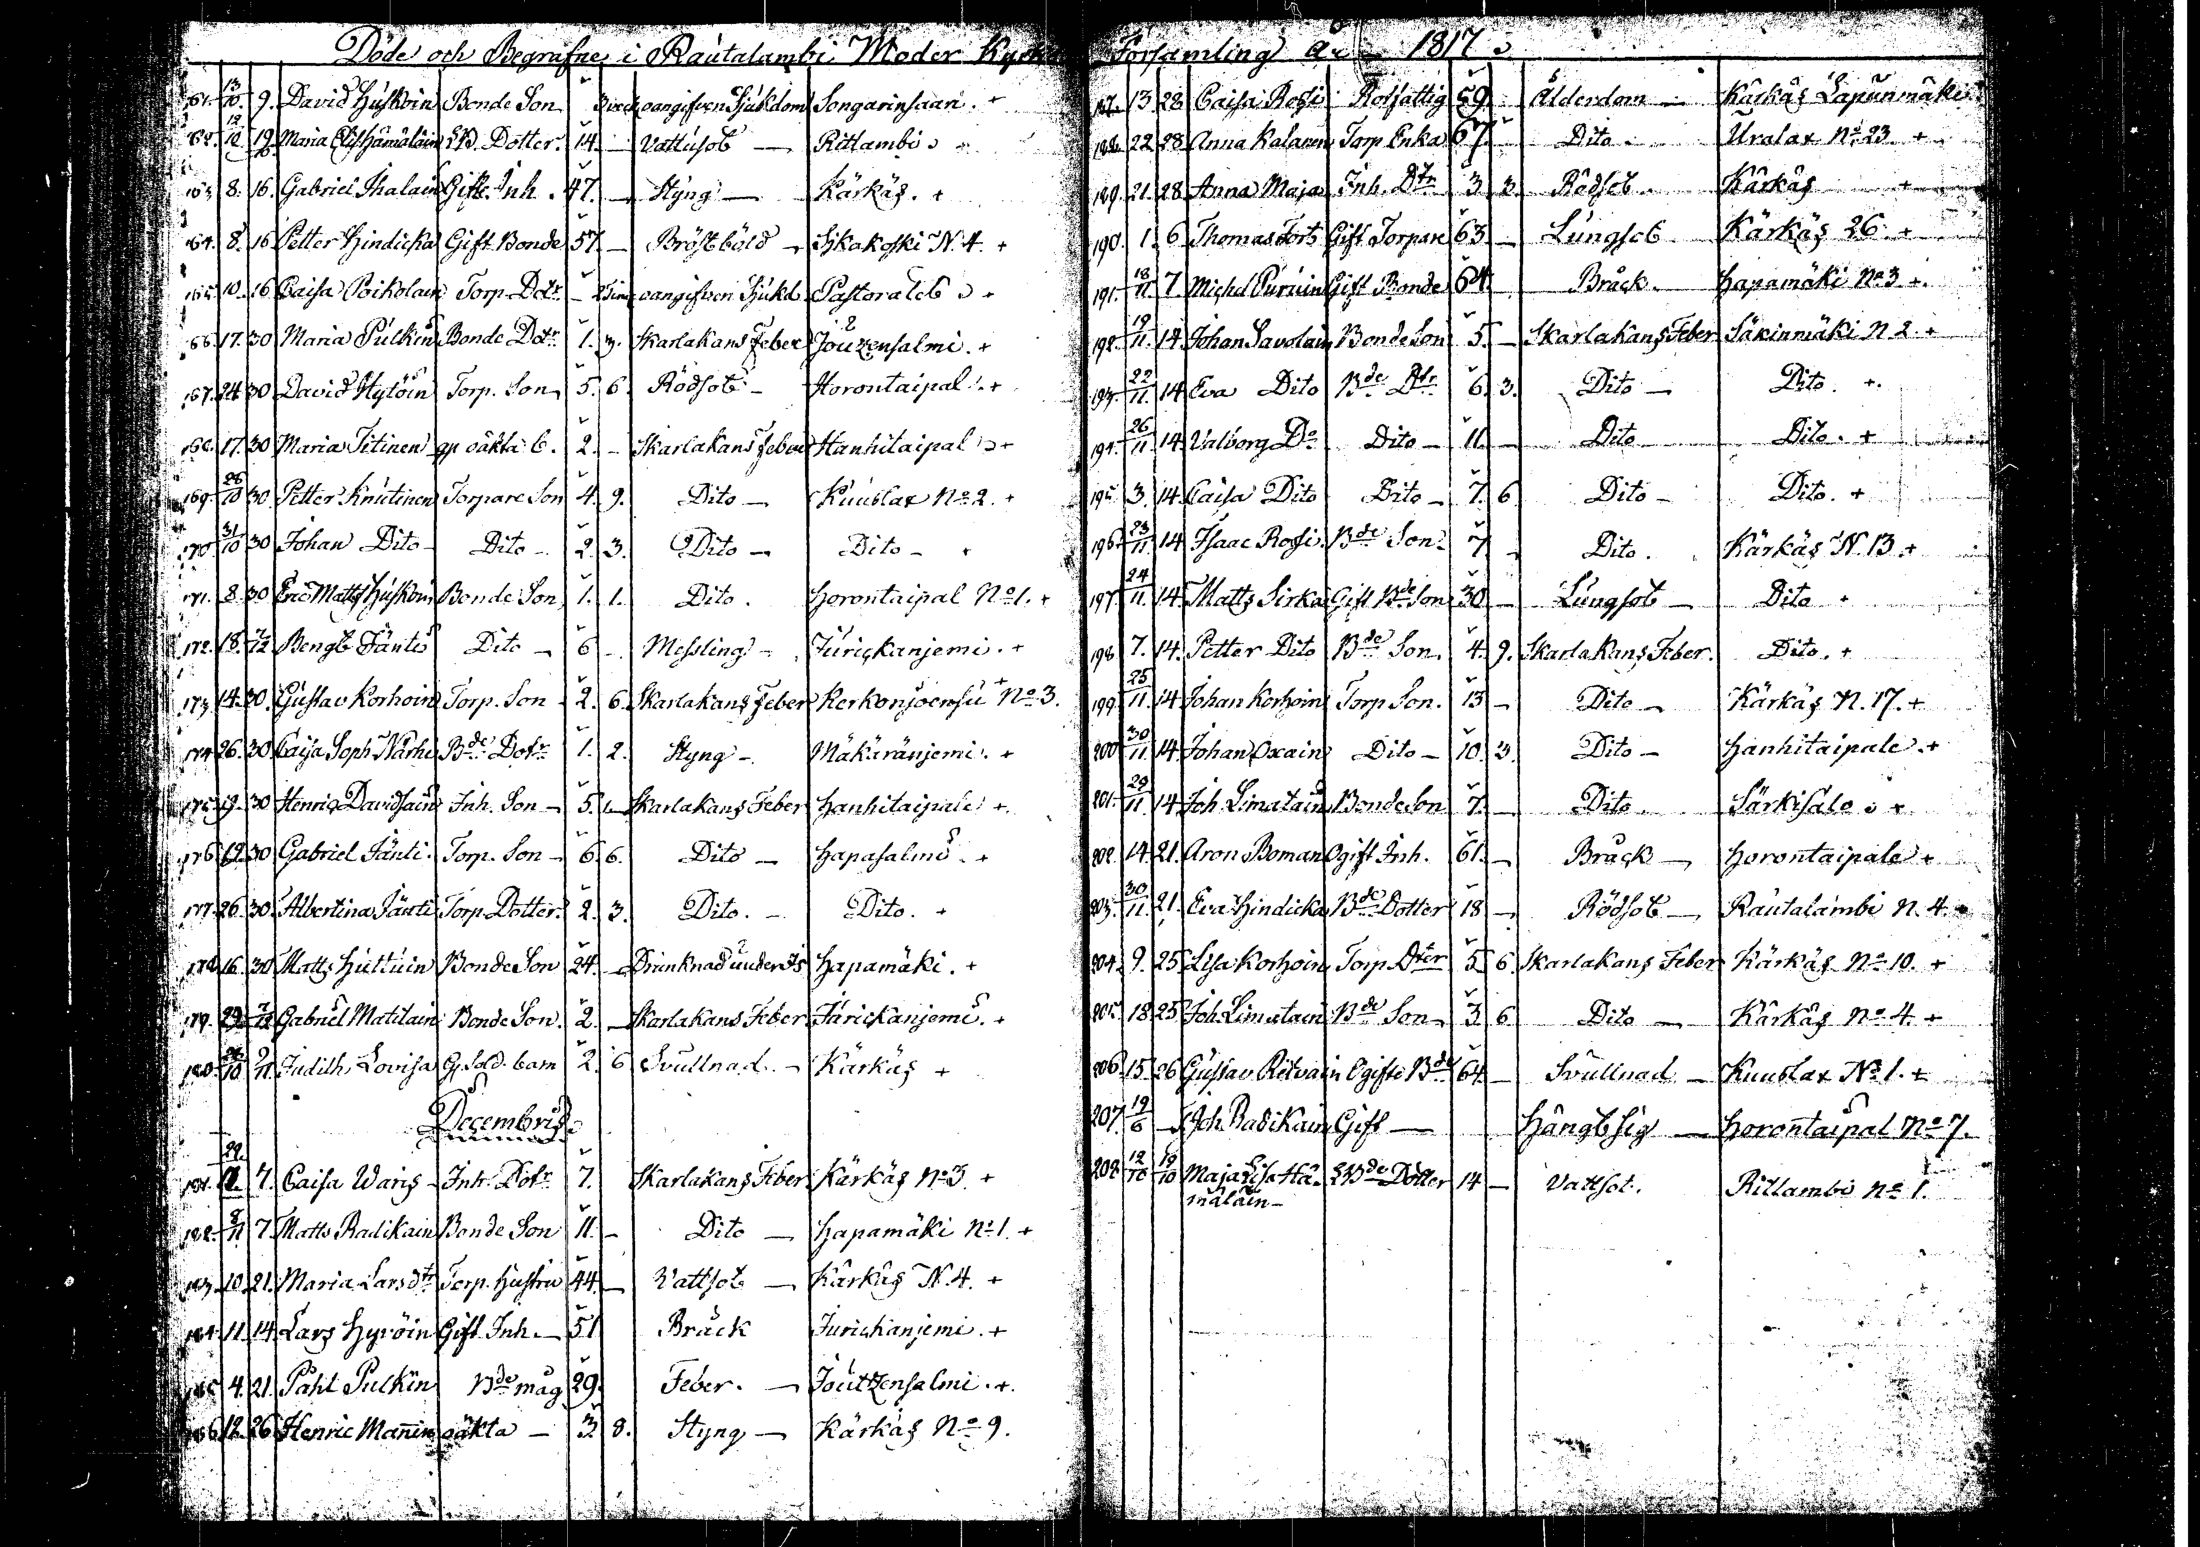 Döde och Begrafne i Rautalambi Moder Kyrko Församling År 1817
161. 13/10. 9. David Huskoin Bonde Son 3 veck oangifven Sjukdom Songarinsaari. +
162. 12/10 19/10. Maria Elis Hämäläin SB. Dotter. 14. — Vattusot — Ritlambi
163 8. 16. Gabriel Ihalain Gift. Inh. 47. — Styng — Kärkäs. +
164. 8. 16 Petter Hindicka Gift Bonde 57 — Bröstböld — Sjkakoski N. 4. +
165. 10. 16 Caisa Poikolain Torp. Dotr — 2 Tim oangifven Sjukd. Pastoratet +
166. 17. 30 Maria Pulkin Bonde Dotr. 1. 3. Skarlakans Feber Jouzensalmi. +
167. 24 30 David Hytöin Torp. Son 5. 6. Rödsot — Horontaipal. +
168. 17. 30 Maria Titinen gp oäkta b. 2. — Skarlakans Feber Hanhitaipal +
169. 28/10 30. Petter Knutinen Torpare Son 4. 9. Dito — Kuuslax No 2. +
170 31/10 30 Johan Dito Dito — 2. 3. Dito — Dito — +
171. 8. 30 Eric Matts Huskoin Bonde Son 1. 1. Dito. Horontaipal No 1. +
172. 18. 7/12 Bengt Jäntis Dito — 6 — Messling — Jurickanjemi. +
173 14. 30. Gustav Korhoin Torp. Son — 2. 6. Skarlakans Feber Kerkonjoensu No 3. +
174 26. 30. Caija Soph Närhi Bde Dotr 1. 2. Styng — Mäkäränjemi. +
175. 19. 30 Henric Davidsain Inh. Son — 5. — Skarlakans Feber Hanhitaipale +
176 19. 30 Gabriel Jänti. Torp. Son — 6 6. Dito — Hapasalmi. +
177. 26. 30. Albertina Jänti Torp. Dotter. 2. 3. Dito. — Dito. +
178 16. 30 Matts Huttuin Bonde Son 24. — Drunknad under is Hapamäki. +
179. 29. 7/12 Gabriel Matilain Bonde Son. 2. — Skarlakans Feber Järickanjemi. +
180. 26/10 9/11 Judith Lovisa Gp. Sold. barn 2. 6 Svullnad. — Kärkäs +
Decembris.
181. 29/11. 7. Caisa Waris — Inh. Dotr. 7. Skarlakans Feber Kärkäs No 3. +
182. 8/11 7. Matts Radikain Bonde Son 11. — Dito — Hapamäki No 1. +
183. 10. 21. Maria Larsdtr Torp. Hustru 44. — Vattsot — Kärkäs N. 4. +
184. 11. 14. Lars Hyröin Gift. Inh. — 51 Bråck Jurickanjemi. +
185 4. 21. Påhl Pulkin Bde måg 29. Feber. — Jouttzensalmi. +.
186 12. 26. Henric Mannin oäkta — 3. 8. Styng — Kärkäs No 9.
187. 13 28 Caisa Rossi Rotfattig 59. Ålderdom — Kärkäs Lapunmäki
188. 22 28 Anna Kalanen Torp Enka 67. Dito. Uralax No 23. +
189. 21. 28 Anna Maja Inh. Dtr 3 3. Rödsot. Kärkäs +
190. 1. 6 Thomas Tarts Gift Torpare 63 — Lungsot Kärkäs 26. +
191. 18/11. 7 Michel Puruin Gift Bonde 64. Bråck. Hapamäki No 3 +.
192. 19/11. 14. Johan Savolain Bonde Son 5. — Skarlakans Feber Säkinmäki N 2. +
193. 22/11. 14 Eva Dito Bde Dtr 6. 3. Dito — Dito. +.
194. 26/11. 14. Valborg Do Dito — 11. — Dito Dito. +
195 3. 14. Caisa Dito Dito — 7. 6 Dito — Dito. +
196. 23/11. 14 Isaac Rossi Bde Son. 7 — Dito. Kärkäs N. 13. +
197. 24/11. 14. Matts Sirka Gift Bde Son 30 — Lungsot — Dito +
198 7. 14. Petter Dito Bde Son 4. 9. Skarlakans Feber. Dito. +
199. 25/11. 14 Johan Korhoin Torp Son. 13 — Dito — Kärkäs N. 17. +
200 30/11. 14. Johan Oxain Dito — 10. 3. Dito — Hanhitaipale. +
201. 29/11. 14 Joh. Limatain Bonde Son 7. — Dito. Särkisalo +
202. 14 21. Aron Boman Ogift Inh. 61. — Bråck — Horontaipale +
203. 30/11. 21. Eva Hindicka Bde Dotter 18 — Rödsot — Rautalambi N. 4.
204. 9. 25 Lisa Korhoin Torp. Dter 5 6 Skarlakans Feber Kärkäs No 10. +
205. 18 25 Joh. Limatain Bde Son 3. 6 Dito — Kärkäs No 4. +
206 15. 26 Gustav Reivain Ogifte Bde 64. — Svullnad — Kuuslax No 1. +
207. 19/6 — Joh. Radikain Gift — Hängt sig — Horontaipal No 7.
208. 12/10 19/10 Maja Lisa Hä- SBde Dotter 14 — Vattsot. Ritlambi No 1.
mäläin —